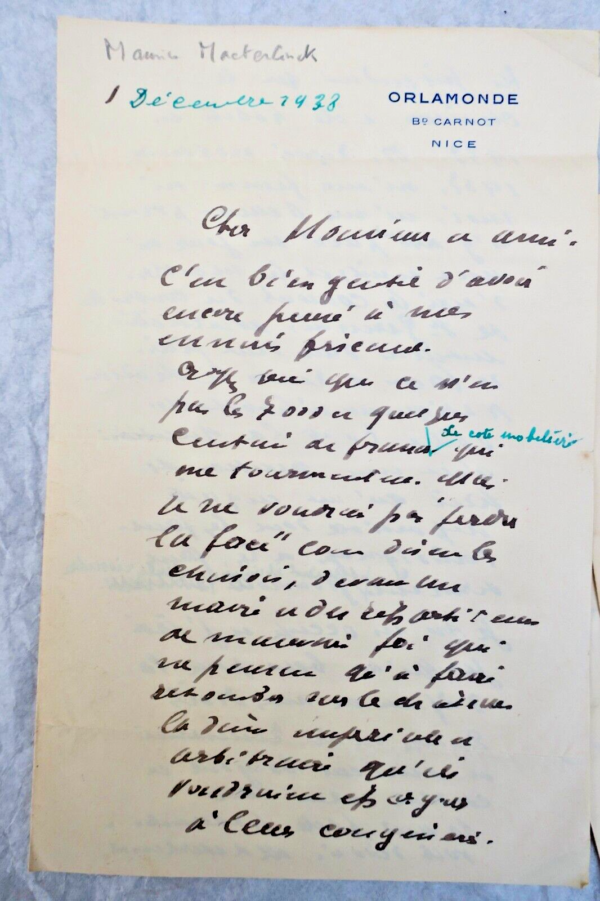 Maurice Maeterlinck
1 Décembre 1938
ORLAMONDE
BD CARNOT
NICE
Cher Monsieur et ami.
C'est bien gentil d'avoir
encore pensé à mes
ennuis fiscaux.
Croyez bien que ce n'est
pas les 7000 et quelques
centaines de francs de cote mobilière qui
me tourmentent. Mais
je ne voudrais pas perdre
la face" comme disent les
chinois, devant un
maire et des répartiteurs
de mauvaise foi qui
ne pensent qu'à faire
retomber sur le château
la dîme imprévue et
arbitraire qu'ils
voudraient épargner
à leurs congénères.